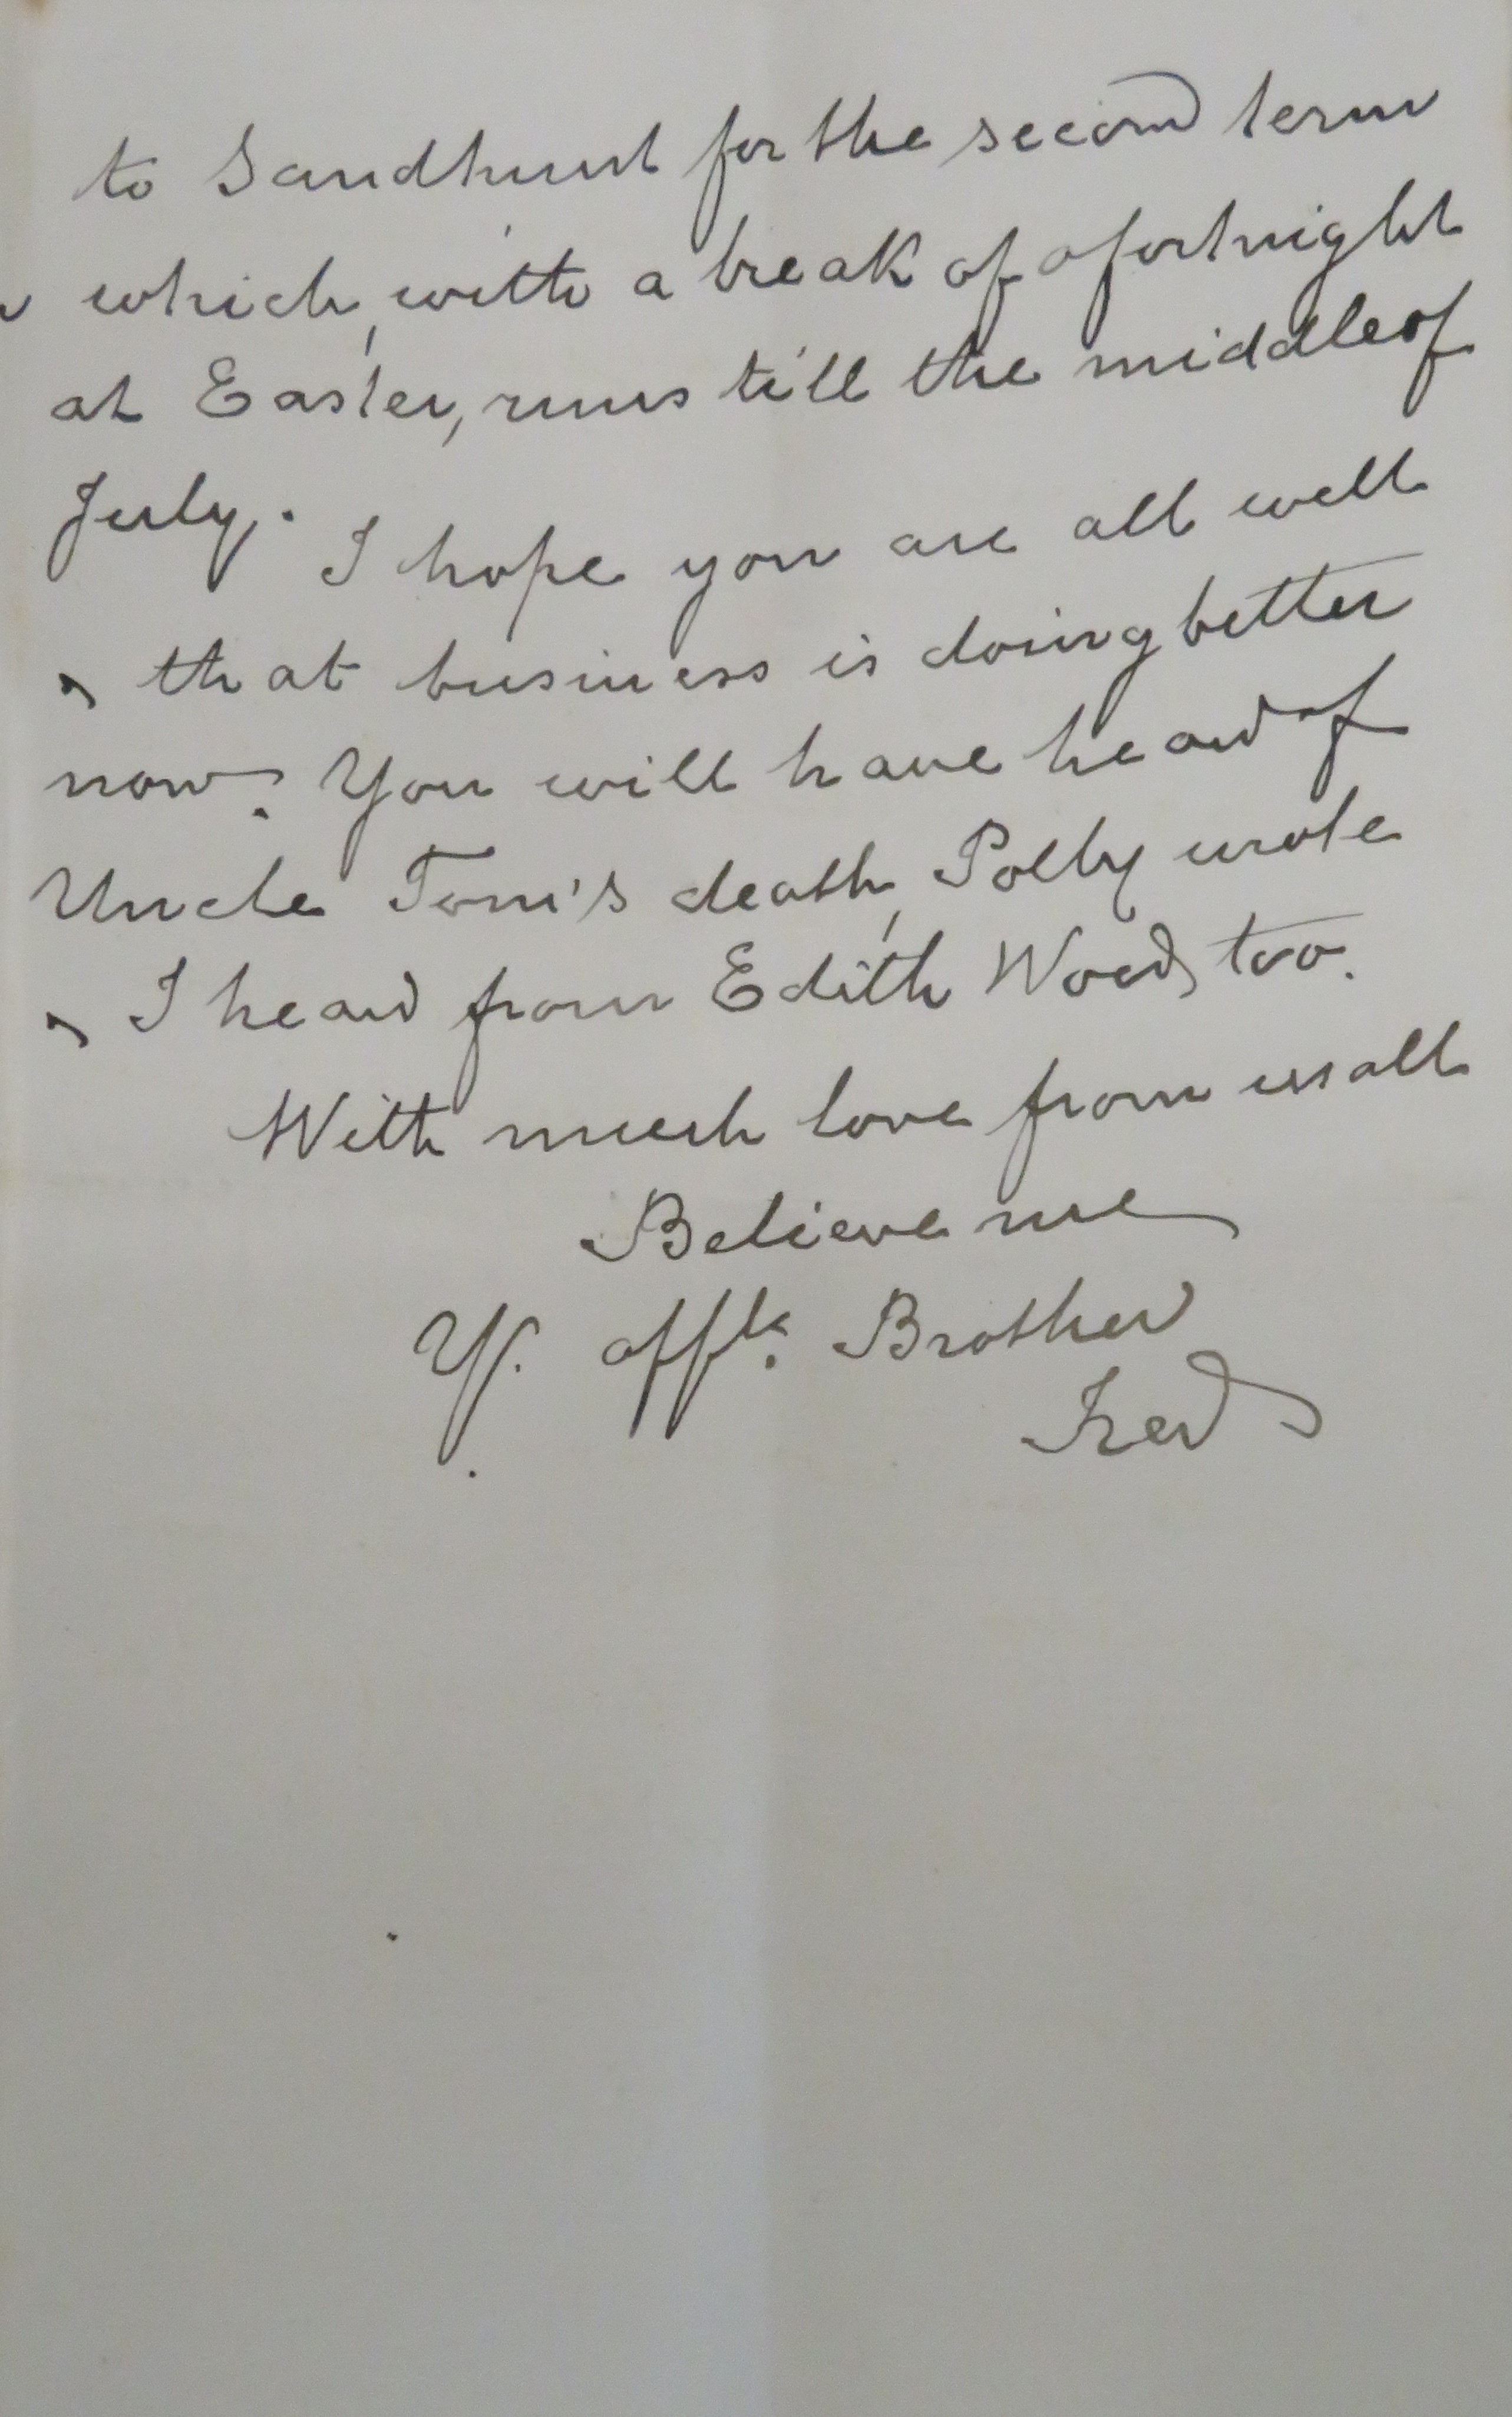 to Sandhurst for the second term
which, with a break of a fortnight
at Easter, runs till the middle of
July. I hope you are all well
& that business is doing better
now. You will have heard of
Uncle Tom's death, Polly wrote
& I heard from Edith Wood, too.
With much love from us all
Believe me
Yr. affte. Brother
Fred